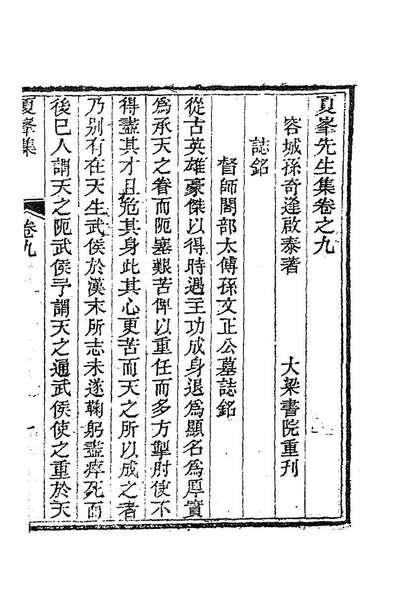 夏峯先生集卷之九
容城孫奇逢啟泰著　大梁書院重刊
誌銘
督師閣部太傅孫文正公墓誌銘
從古英雄豪傑以得時遇主功成身退爲顯名爲厚實
爲承天之眷而阨塞艱苦俾以重任而多方掣肘使不
得盡其才且危其身此其心更苦而天之所以成之者
乃别有在天生武侯於漢末所志未遂鞠躬盡瘁死而
後已人謂天之阨武侯予謂天之通武侯使之重於天
夏峯集
卷九